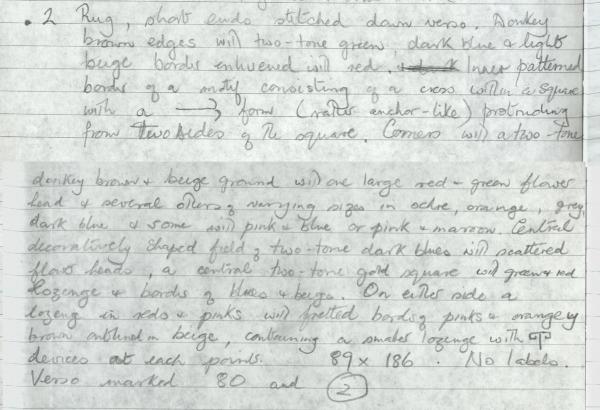 . 2 Rug, short ends stitched down verso. Donkey
brown edges with two-tone green, dark blue & light
beige borders enlivened with red. Inner patterned
border of a motif consisting of a cross within a square
with a form (rather anchor-like) protruding
from two sides of the square. Corners with a two-tone
donkey brown & beige ground with one large red & green flower
head & several others of varying sizes in ochre, orange, grey,
dark blue & some with pink & blue or pink & maroon. Central
decoratively shaped field of two-tone dark blues with scattered
flower heads, a central two-tone gold square with green & red
lozenge & borders of blues & beige. On either side a
lozenge in reds & pinks with fretted borders of pinks & orangey
brown outlined in beige, containing a smaller lozenge with
devices at each points. 89 x 186. No labels.
Verso marked 80 and 2